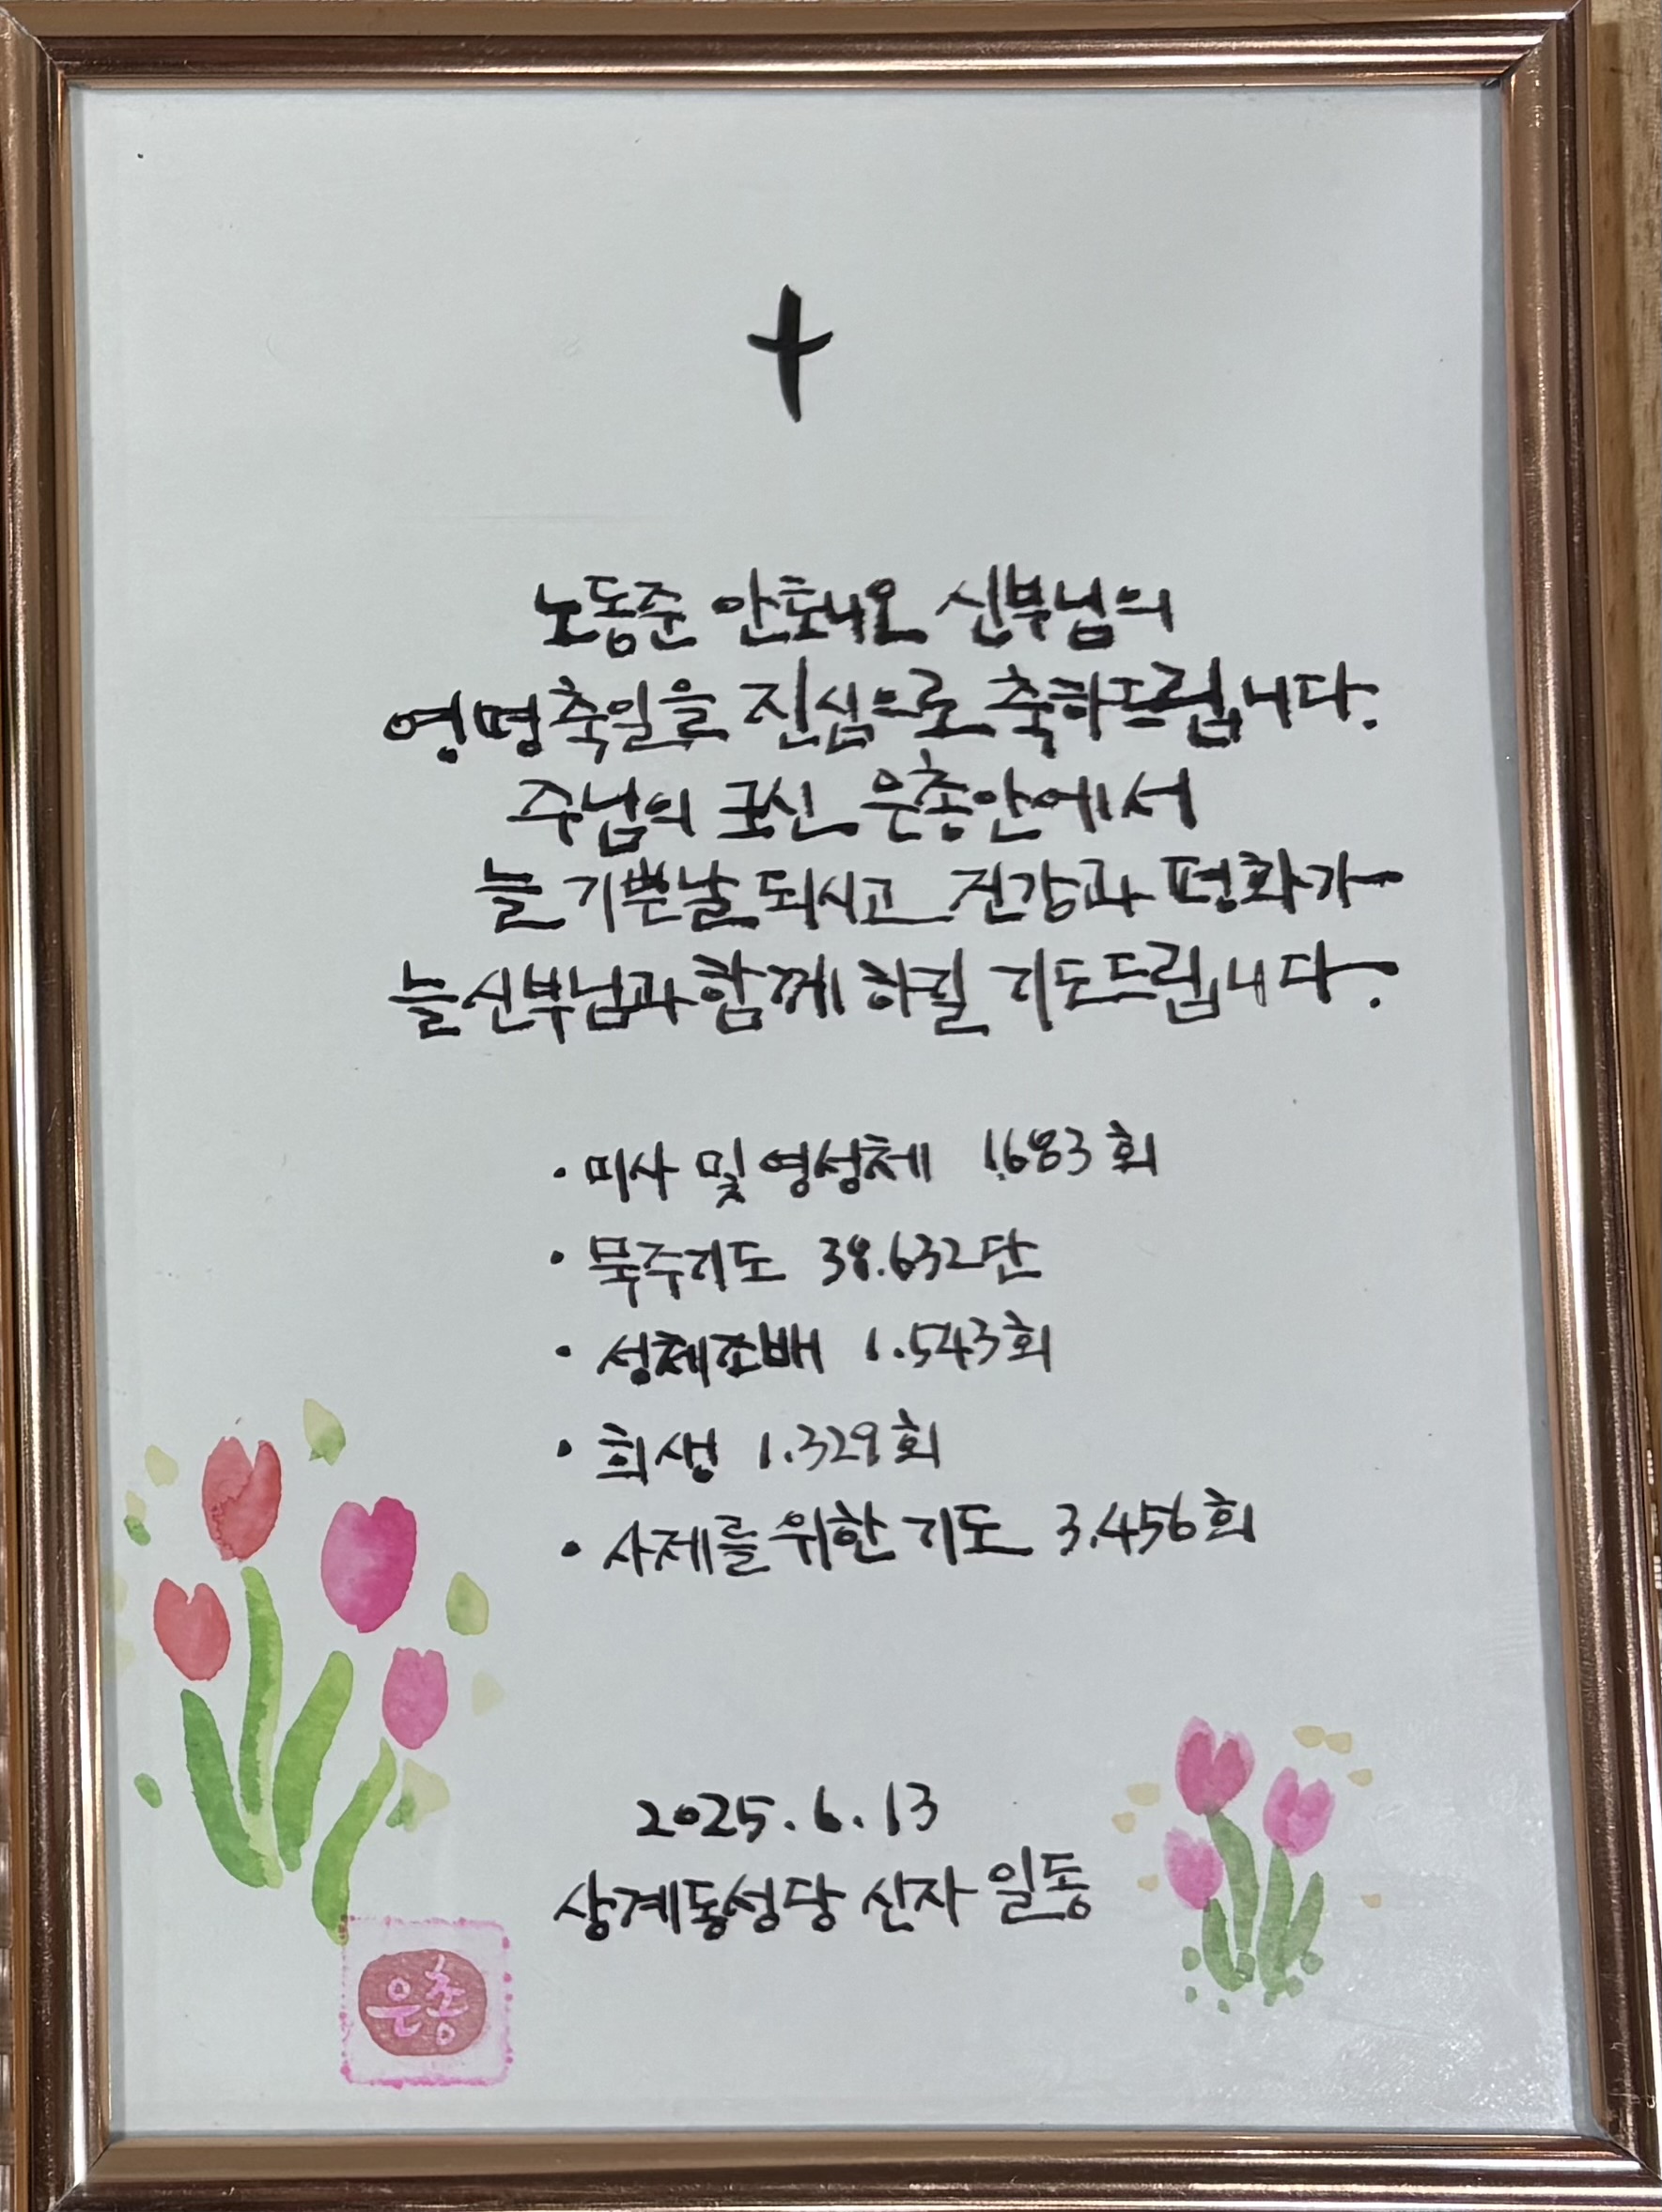 노동준 안토니오 신부님의
영명축일을 진심으로 축하드립니다.
주님의 크신 은총안에서
늘 기쁜날 되시고 건강과 평화가
늘 신부님과 함께 하길 기도드립니다.
· 미사 및 영성체 1.683회
· 묵주기도 38.632단
· 성체조배 1.543회
· 희생 1.329회
· 사제를 위한 기도 3.456회
2025.6.13
상계동성당 신자 일동
은총